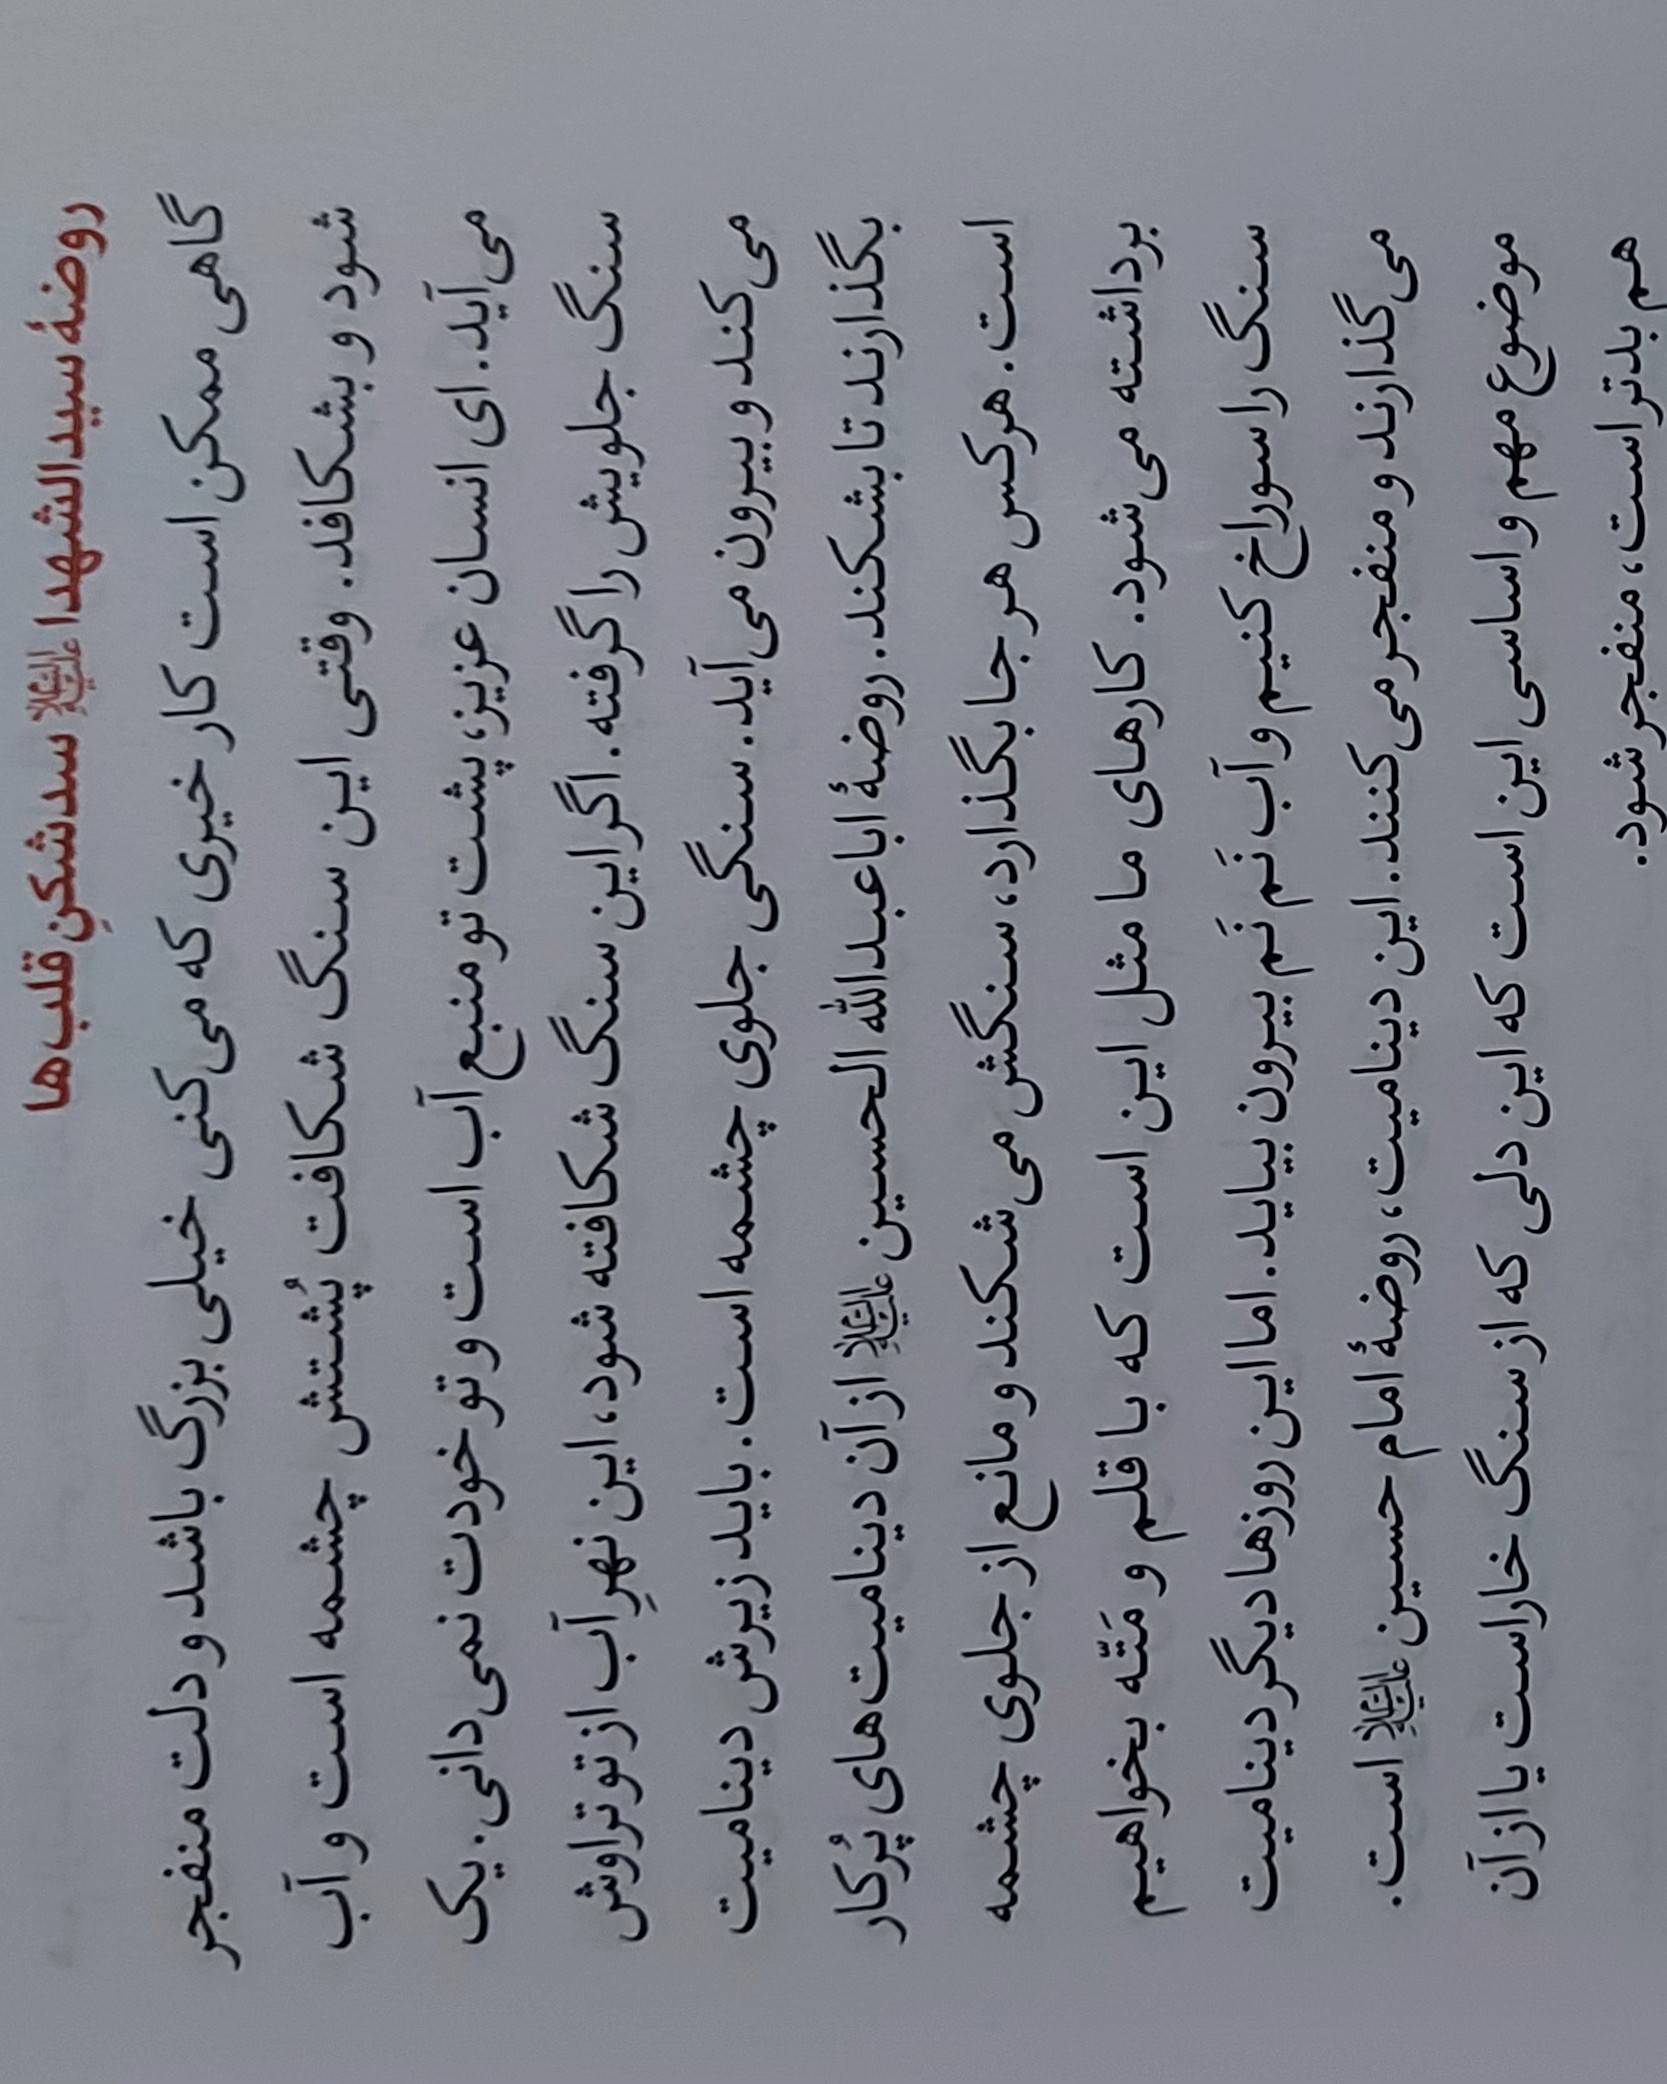 روضهٔ سیدالشهدا علیه‌السلام سدشکنِ قلب‌ها
گاهی ممکن است کار خیری که می‌کنی خیلی بزرگ باشد و دلت منفجر
شود و بشکافد. وقتی این سنگ شکافت پُشتش چشمه است و آب
می‌آید. ای انسان عزیز، پشت تو منبع آب است و تو خودت نمی‌دانی. یک
سنگ جلویش را گرفته. اگر این سنگ شکافته شود، این نهرِ آب از تو تراوش
می‌کند و بیرون می‌آید. سنگی جلوی چشمه است. باید زیرش دینامیت
بگذارند تا بشکند. روضهٔ اباعبدالله الحسین علیه‌السلام از آن دینامیت‌های پُرکار
است. هرکس هر جا بگذارد، سنگش می‌شکند و مانع از جلوی چشمه
برداشته می‌شود. کارهای ما مثل این است که با قلم و مَتّه بخواهیم
سنگ را سوراخ کنیم و آب نَم نَم بیرون بیاید. اما این روزها دیگر دینامیت
می‌گذارند و منفجر می‌کنند. این دینامیت، روضهٔ امام حسین علیه‌السلام است.
موضوع مهم و اساسی این است که این دلی که از سنگ خاراست یا از آن
هم بدتر است، منفجر شود.